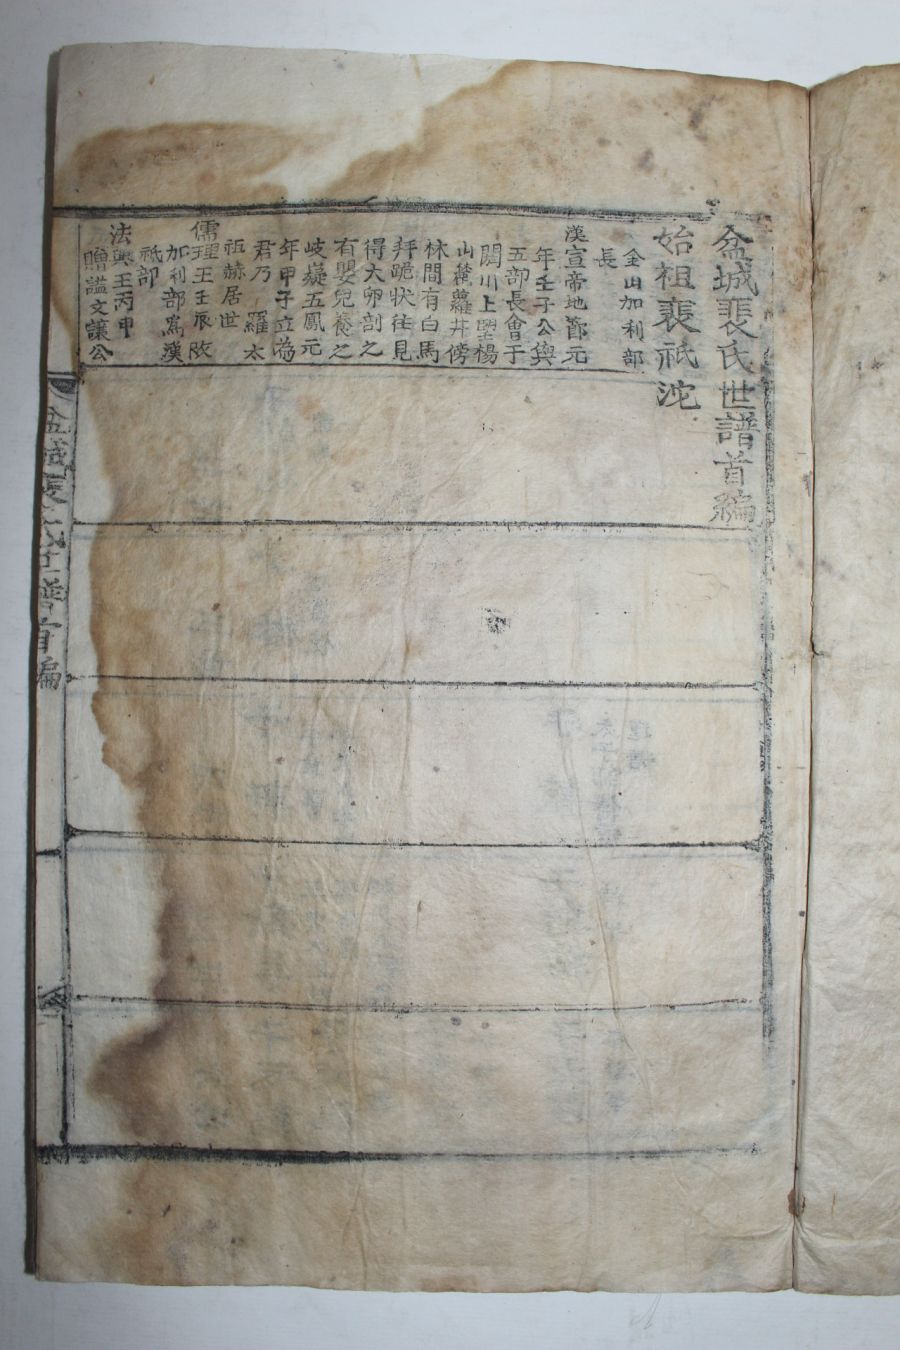 盆城裴氏世譜首編
始祖裴祇沱
金山加利部
長
漢宣帝地節元
年壬子公與
五部長會于
閼川上望楊
山麓蘿井傍
林間有白馬
拜跪狀往見
得大卵剖之
有嬰兒養之
岐嶷五鳳元
年甲子立為
君乃羅太
祖赫居世
儒理王壬辰改
加利部為漢
祇部
法興王丙申
贈諡文讓公
盆城裴氏世譜首編